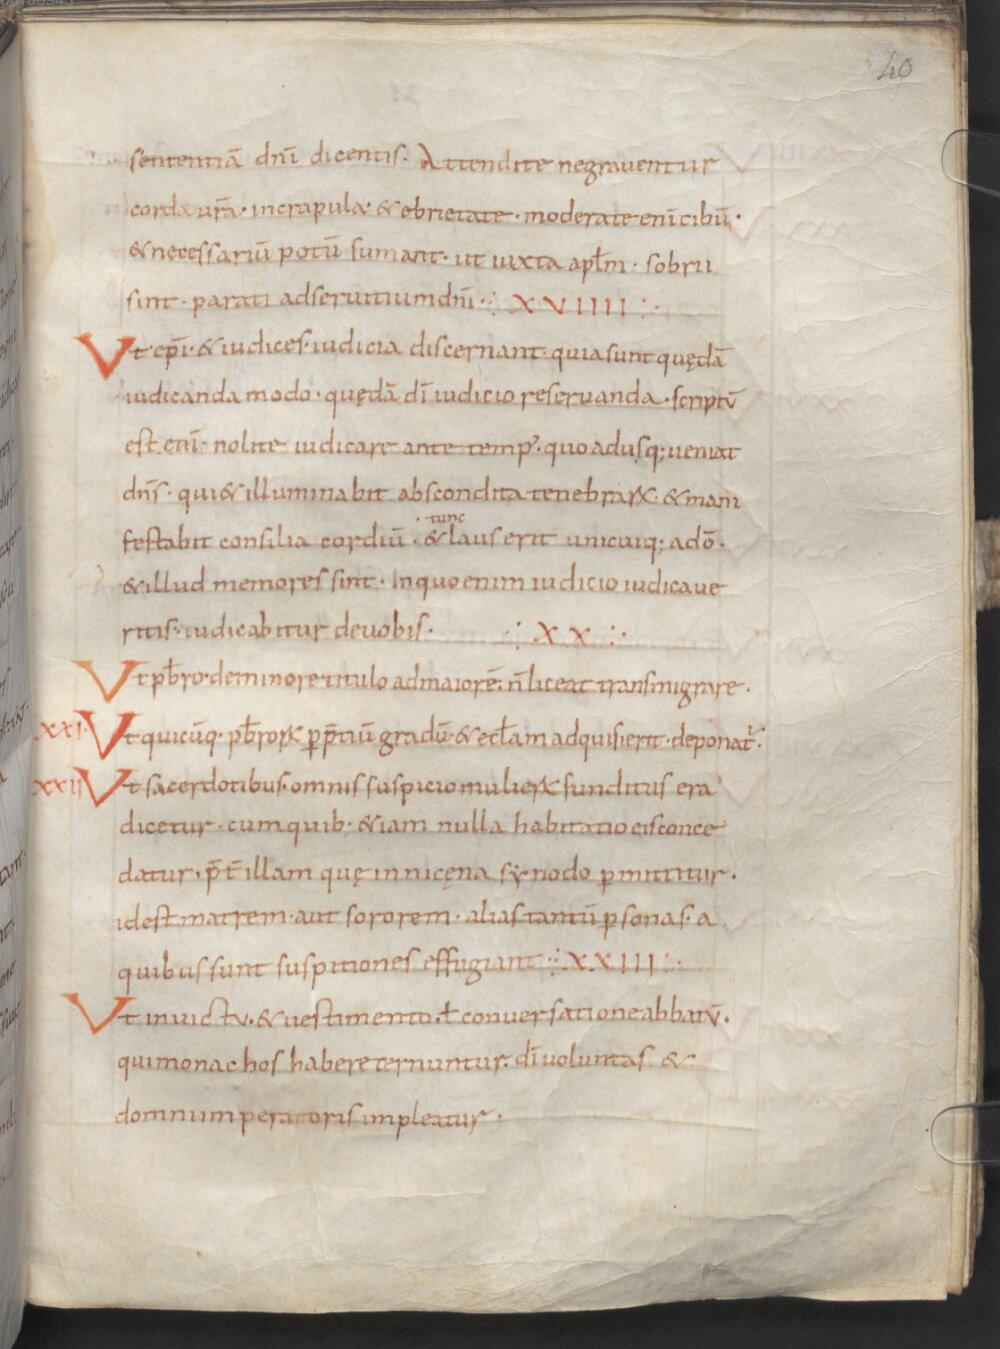 40
sententiā dn̄i dicentis. Attendite negraventur
corda vr̄a · incrapula · & ebrietate · moderate enī cibū ·
& necessariū potū sumant · ut iuxta apłm · sobrii
sint · parati adseruitium dn̄i · XVIIII
Vt ep̄i · & iudices · iudicia discernant · quia sunt quędā
iudicanda modo · quędā dī iudicio reseruanda · scriptū
est enī · nolite iudicare ante temp' · quo adusq; ueniat
dn̄s · qui & illuminabit abscondita tenebraꝝ · & mani
tunc
festabit consilia cordiū · & laus erit unicuiq; adō ·
& illud memores sint · In quo enim iudicio iudicaue
ritis · iudicabitur deuobis · XX
Vt pƀro · deminore titulo admaiorē · n̄ liceat transmigrare ·
XXI · Vt quicūq · pƀroꝝ ꝑ p̄tiū gradū · & ecƚam adquisierit · deponat̄ ·
XXII Vt sacerdotibus · omnis suspicio mulieꝝ funditus era
dicetur · cum quib · & iam nulla habitatio eis conce
datur · p̄t illam quę in nicęna synodo ꝑmittitur ·
id est matrem · aut sororem · alias tantū ꝑsonas · a
quibus sunt suspitiones effugiant · XXIII
Vt in uictu · & uestimento · ƚ conuersatione abbatū ·
qui monachos habere cernuntur · dī uoluntas &
domni imperatoris impleatur ·